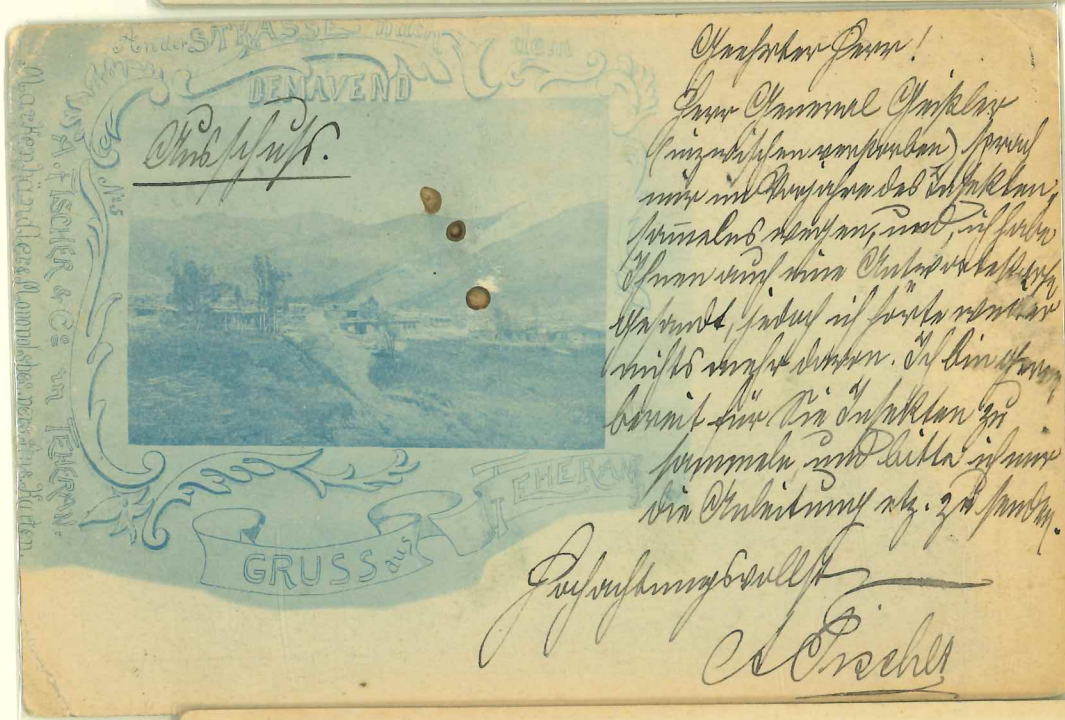 An der STRASSE nach dem
DEMAVEND
Ausschuss.
No 5
A. FISCHER & Co. in TEHERAN.
GRUSS aus TEHERAN
Geehrter Herr!
Herr General
(inzwischen verstorben) sprach
mir im Vorjahre des Insekten,
sammelns wegen, und ich habe
Ihnen auch eine Antwortskarte
gesandt, jedoch ich hörte weiter
nichts mehr davon. Ich bin gern
bereit für Sie Insekten zu
sammeln und bitte ich mir
die Anleitung etz. zu senden.
Hochachtungsvollst
A Fischer